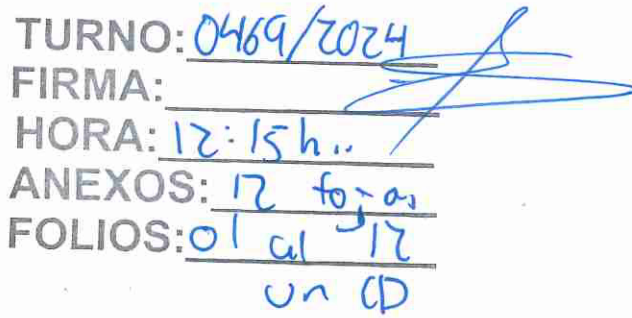 TURNO: 0469/2024
FIRMA:
HORA: 12:15 h..
ANEXOS: 12 fojas
FOLIOS: 01 al 12
un CD